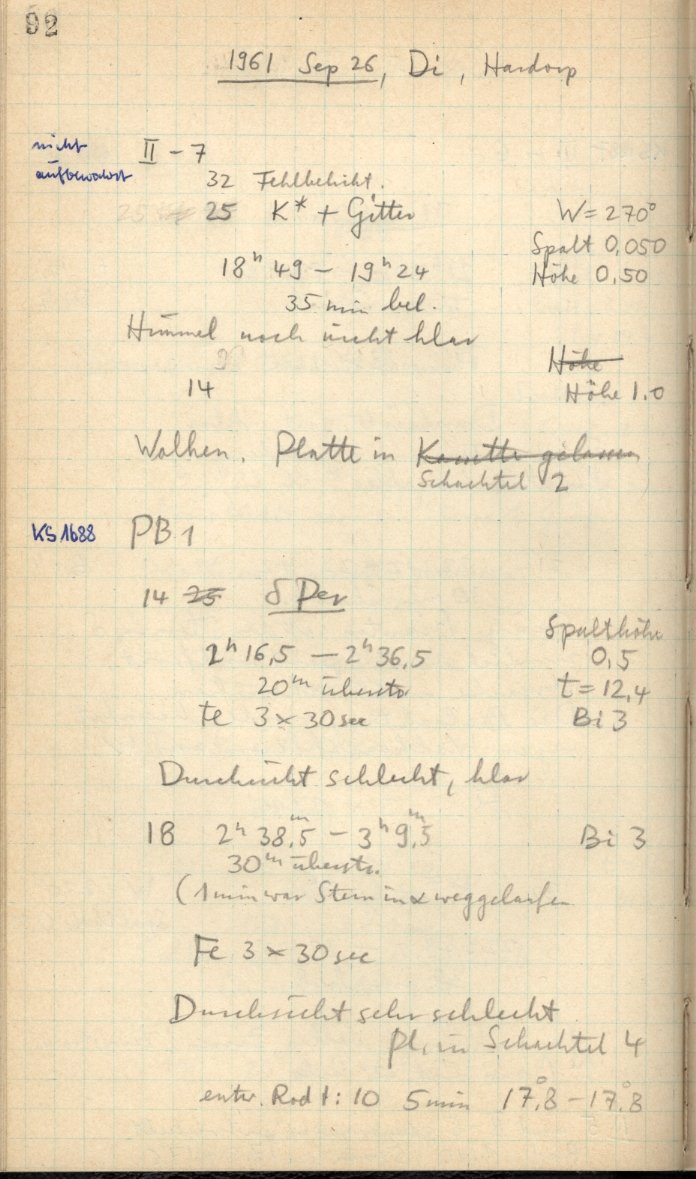 92
1961 Sep 26, Di, Hardorp
nicht II - 7
aufbewahrt
32 Fehlbelicht.
25 K* + Gitter W = 270°
Spalt 0,050
18h 49 - 19h 24 Höhe 0,50
35 min bel.
Himmel noch nicht klar
Höhe
14 Höhe 1.0
Wolken. Platte in Kassette gelassen
Schachtel 2
KS 1688 PB 1
14 25 δ Per
Spalthöhe
2h 16,5 - 2h 36,5 0,5
20m überstr t = 12,4
Fe 3 x 30 sec Bi 3
Durchsicht schlecht, klar
18 2h 38,5m - 3h 9,5m Bi 3
30m überstr.
(1 min war Stern in α weggelaufen
Fe 3 x 30 sec
Durchsicht sehr schlecht
Pl. in Schachtel 4
entw. Rod 1:10 5 min 17°,8 - 17.8